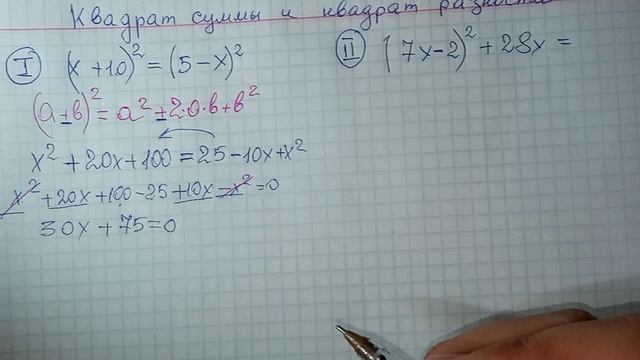 Квадрат суммы и квадрат разности
I (x+10)² = (5-x)²
(a±b)² = a² ± 2·a·b + b²
x² + 20x + 100 = 25 - 10x + x²
x² + 20x + 100 - 25 + 10x - x² = 0
30x + 75 = 0
II (7x-2)² + 28x =